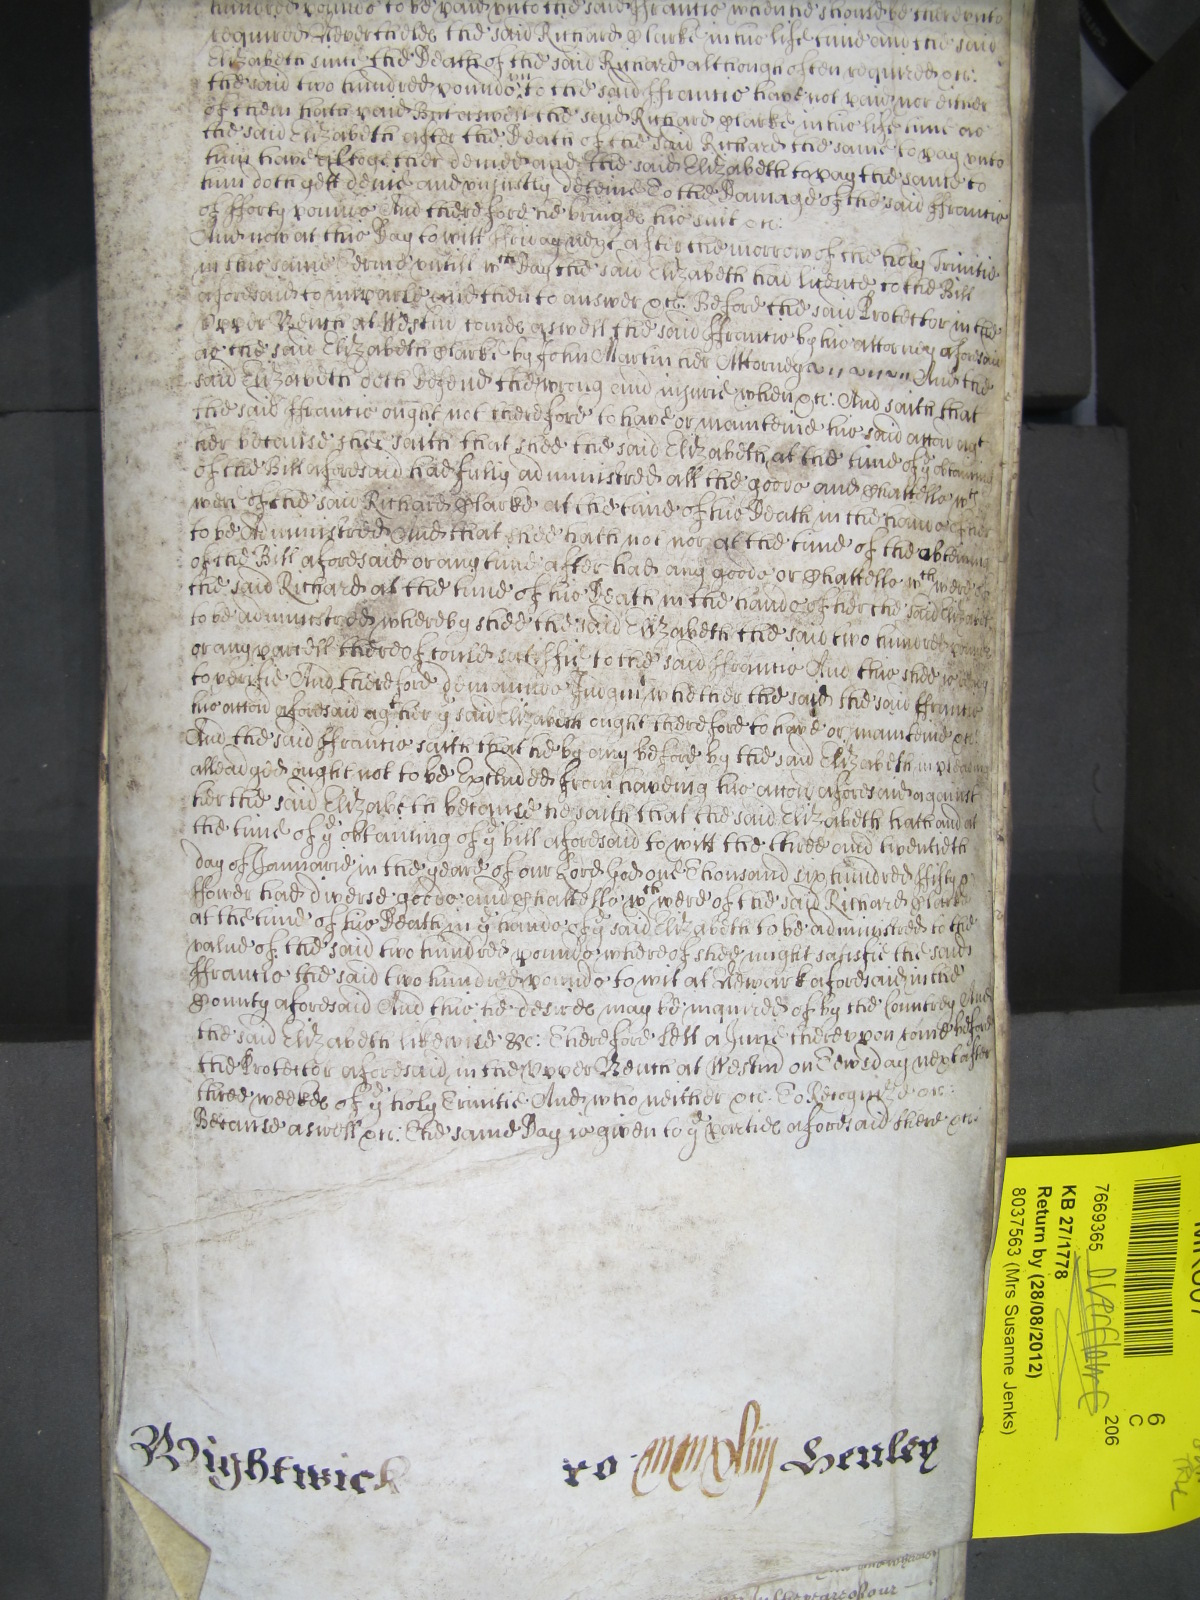 hundred pounds to be paid unto the said ffrancis when he should be thereunto
required Neverthelesse the said Richard Clarke in his life time and the said
Elizabeth since the Death of the said Richard although often required &c:
the said two hundred pounds to the said ffrancis have not paid nor either
of them hath paid But aswell the said Richard Clarke in his life time as
the said Elizabeth after the Death of the said Richard the same to pay unto
him have altogether denied and the said Elizabeth to pay the same to
him doth yett denie and unjustly deteine To the Damage of the said ffrancis
of fforty pounds And therefore he bringes his suit &c:
And now at this Day to witt ffriday next after the morrow of the holy Trinitie
in this same Terme untill wch Day the said Elizabeth had licence to the Bill
aforesaid to imparle and then to answer &c: Before the said Protector in the
Upper Bench at Westm comes aswell the said ffrancis by his attorney aforesaid
as the said Elizabeth Clarke by John Martin her Attorney And the
said Elizabeth doth defend the wrong and injurie when &c: And saith that
the said ffrancis ought not therefore to have or mainteine his said accon agt
her because shee saith that shee the said Elizabeth at the time of ye obteining
of the Bill aforesaid had fully administred all the goods and Chattells wch
were of the said Richard Clarke at the time of his Death in the hands of her
to be Administred And that shee hath not nor at the time of the obteining
of the Bill aforesaid or any time after had any goods or Chattells wch were of
the said Richard at the time of his Death in the hands of her the said Elizabeth
to be administred whereby shee the said Elizabeth the said two hundred pounds
or any parcell thereof could satisfie to the said ffrancis And this shee is ready
to verifie And therefore demaunds Judgmt whether the said the said ffrancis
his accon aforesaid agt her ye said Elizabeth ought therefore to have or mainteine &c:
And the said ffrancis saith that he by any before by the said Elizabeth in pleading
alleadged ought not to be Excluded from haveing his accon aforesaid against
her the said Elizabeth because he saith that the said Elizabeth hath and at
the time of ye obtaining of ye bill aforesaid to witt the three and twentieth
day of Januarie in the yeare of our Lord God one Thousand six hundred ffifty
ffower had diverse goods and Chattells wch were of the said Richard Clarke
at the time of his Death in ye hands of ye said Elizabeth to be administred to the
value of the said two hundred pounds whereof shee might satisfie the said
ffrancis the said two hundred pounds to wit at Newark aforesaid in the
County aforesaid And this he desires may be inquired of by the Countrey And
the said Elizabeth likewise &c: Therefore lett a Jurie thereupon come before
the Protector aforesaid in the Upper Bench at Westm on Tewsday next after
three weekes of ye holy Trinitie And who neither &c: To Recognize &c:
Because aswell &c: The same Day is given to ye parties aforesaid there &c:
Wightwick ro mmxliiij Henley
7669365
KB 27/1778
Return by (28/08/2012)
8037563 (Mrs Susanne Jenks)
206
6
C